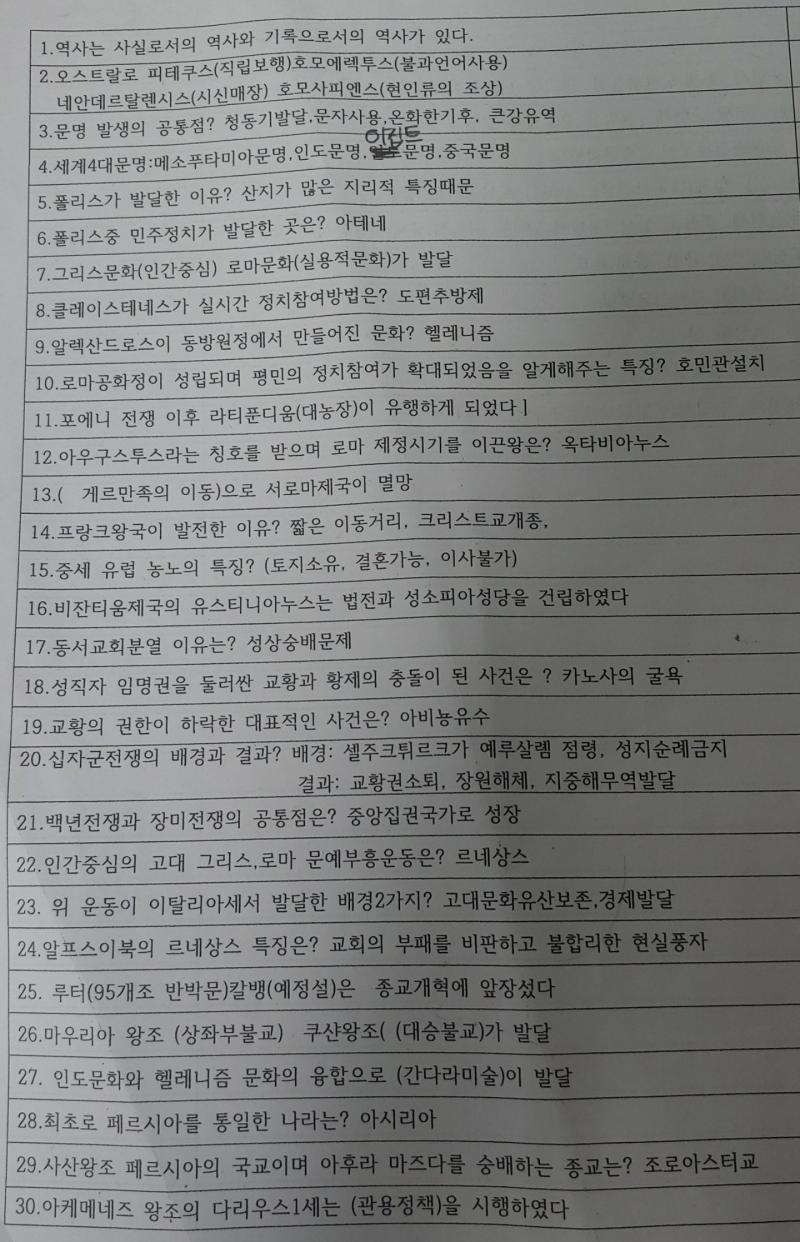 1.역사는 사실로서의 역사와 기록으로서의 역사가 있다.
2.오스트랄로 피테쿠스(직립보행)호모에렉투스(불과언어사용)
네안데르탈렌시스(시신매장) 호모사피엔스(현인류의 조상)
3.문명 발생의 공통점? 청동기발달,문자사용,온화한기후, 큰강유역
4.세계4대문명:메소푸타미아문명,인도문명,이집트문명,중국문명
5.폴리스가 발달한 이유? 산지가 많은 지리적 특징때문
6.폴리스중 민주정치가 발달한 곳은? 아테네
7.그리스문화(인간중심) 로마문화(실용적문화)가 발달
8.클레이스테네스가 실시간 정치참여방법은? 도편추방제
9.알렉산드로스이 동방원정에서 만들어진 문화? 헬레니즘
10.로마공화정이 성립되며 평민의 정치참여가 확대되었음을 알게해주는 특징? 호민관설치
11.포에니 전쟁 이후 라티푼디움(대농장)이 유행하게 되었다ㅣ
12.아우구스투스라는 칭호를 받으며 로마 제정시기를 이끈왕은? 옥타비아누스
13.( 게르만족의 이동)으로 서로마제국이 멸망
14.프랑크왕국이 발전한 이유? 짧은 이동거리, 크리스트교개종,
15.중세 유럽 농노의 특징? (토지소유, 결혼가능, 이사불가)
16.비잔티움제국의 유스티니아누스는 법전과 성소피아성당을 건립하였다
17.동서교회분열 이유는? 성상숭배문제
18.성직자 임명권을 둘러싼 교황과 황제의 충돌이 된 사건은 ? 카노사의 굴욕
19.교황의 권한이 하락한 대표적인 사건은? 아비뇽유수
20.십자군전쟁의 배경과 결과? 배경: 셀주크튀르크가 예루살렘 점령, 성지순례금지
결과: 교황권소퇴, 장원해체, 지중해무역발달
21.백년전쟁과 장미전쟁의 공통점은? 중앙집권국가로 성장
22.인간중심의 고대 그리스,로마 문예부흥운동은? 르네상스
23. 위 운동이 이탈리아세서 발달한 배경2가지? 고대문화유산보존,경제발달
24.알프스이북의 르네상스 특징은? 교회의 부패를 비판하고 불합리한 현실풍자
25. 루터(95개조 반박문)칼뱅(예정설)은 종교개혁에 앞장섰다
26.마우리아 왕조 (상좌부불교) 쿠샨왕조( (대승불교)가 발달
27. 인도문화와 헬레니즘 문화의 융합으로 (간다라미술)이 발달
28.최초로 페르시아를 통일한 나라는? 아시리아
29.사산왕조 페르시아의 국교이며 아후라 마즈다를 숭배하는 종교는? 조로아스터교
30.아케메네즈 왕조의 다리우스1세는 (관용정책)을 시행하였다